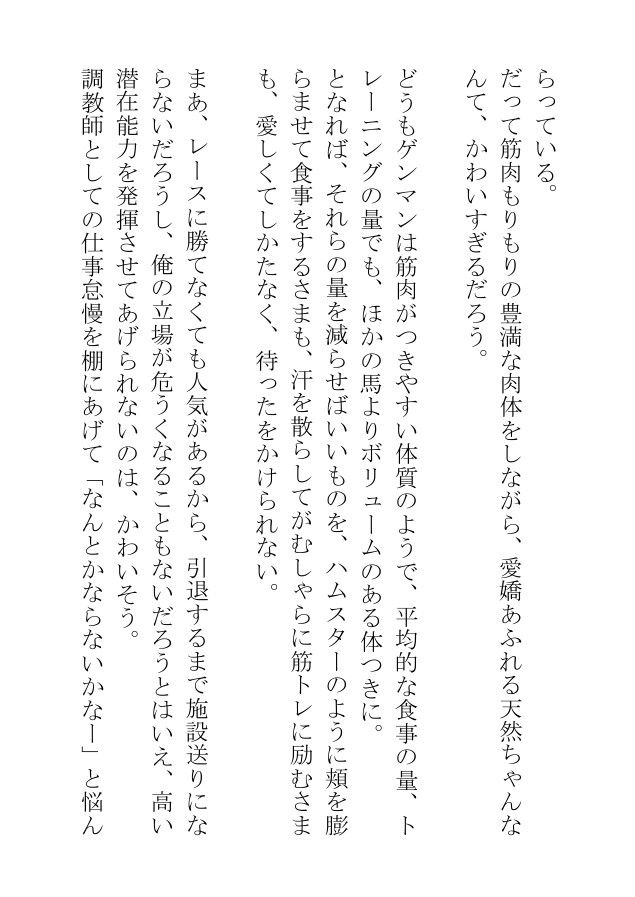 らっている。
だって筋肉もりもりの豊満な肉体をしながら、愛嬌あふれる天然ちゃんな
んて、かわいすぎるだろう。
どうもゲンマンは筋肉がつきやすい体質のようで、平均的な食事の量、ト
レーニングの量でも、ほかの馬よりボリュームのある体つきに。
となれば、それらの量を減らせばいいものを、ハムスターのように頬を膨
らませて食事をするさまも、汗を散らしてがむしゃらに筋トレに励むさま
も、愛しくてしかたなく、待ったをかけられない。
まあ、レースに勝てなくても人気があるから、引退するまで施設送りにな
らないだろうし、俺の立場が危うくなることもないだろうとはいえ、高い
潜在能力を発揮させてあげられないのは、かわいそう。
調教師としての仕事怠慢を棚にあげて「なんとかならないかなー」と悩ん